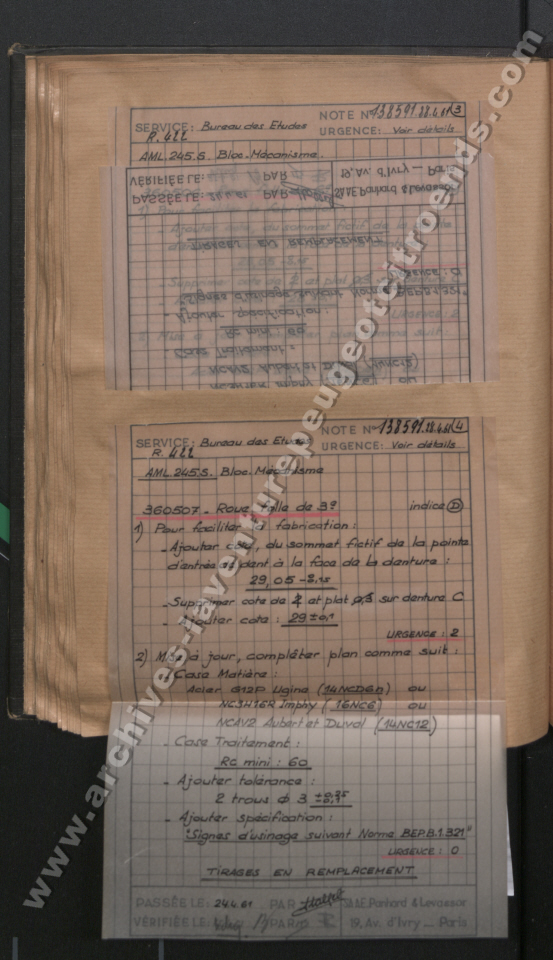 NOTE N° 138591 28.4.61 3
SERVICE: Bureau des Etudes
URGENCE: Voir détails
R. 422
AML. 245.S. Bloc. Mécanisme.
VÉRIFIÉE LE: PAR
19, Av. d'Ivry — Paris
PASSÉE LE: 24.4.61 PAR
S.A.E. Panhard & Levassor
TIRAGES EN REMPLACEMENT
URGENCE: 0
"Signes d'usinage suivant Norme BEP.B.1.321"
- Ajouter spécification:
Rc mini: 60
- Case Traitement:
NCAV2 Aubert et Duval (14NC12)
NOTE N° 138591 28.4.61 4
SERVICE: Bureau des Etudes
URGENCE: Voir détails
R. 422
AML. 245.S. Bloc. Mécanisme
360507 - Roue folle de 3e indice D
1) Pour faciliter la fabrication:
- Ajouter cote, du sommet fictif de la pointe
d'entrée de dent à la face de la denture:
29,05
- Supprimer cote de et plat sur denture C
- Ajouter cote: 29 ±0,1
URGENCE: 2
2) Mise à jour, compléter plan comme suit:
- Case Matière:
Acier G12P Ugine (14NCD6n) ou
NC3H16R Imphy (16NC6) ou
NCAV2 Aubert et Duval (14NC12)
- Case Traitement:
Rc mini: 60
- Ajouter tolérance:
2 trous ϕ 3 +0,25 -0,1
- Ajouter spécification:
"Signes d'usinage suivant Norme BEP.B.1.321"
URGENCE: 0
TIRAGES EN REMPLACEMENT
PASSÉE LE: 24.4.61 PAR S.A.E. Panhard & Levassor
VÉRIFIÉE LE: PAR 19, Av. d'Ivry — Paris
www.archives-laventurepeugeotcitroends.com